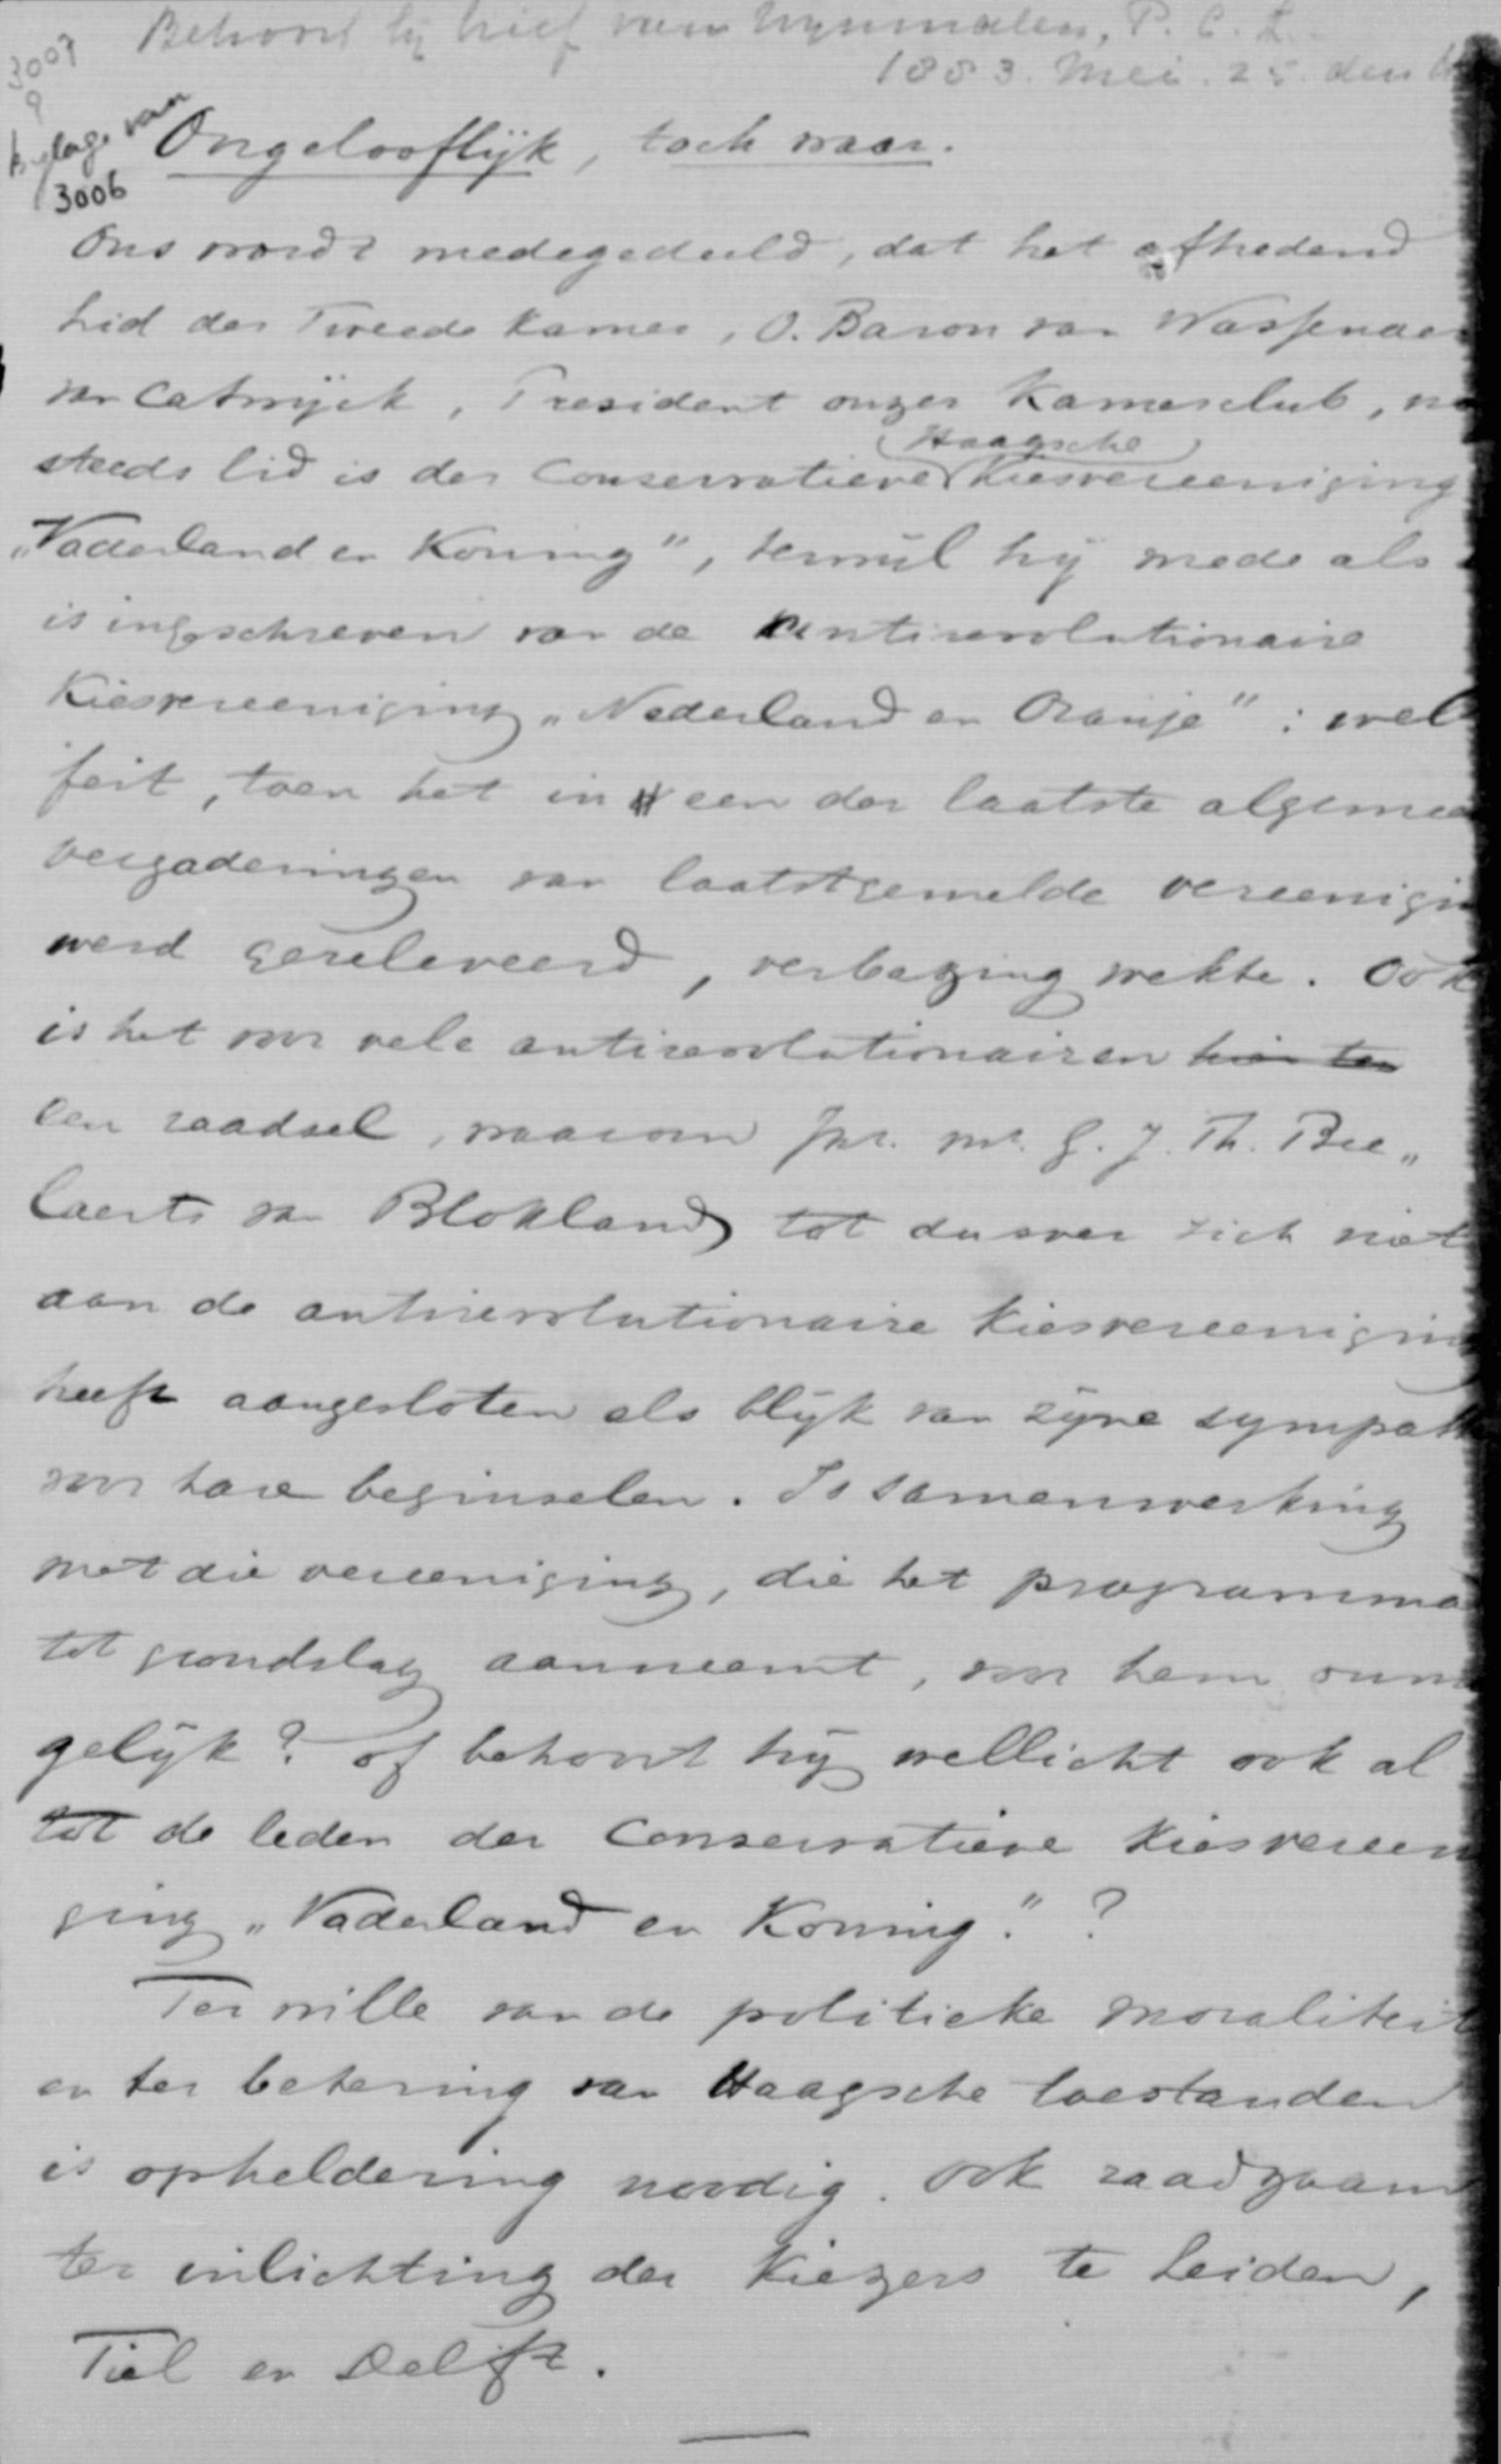 Behoort bij brief van Wynmalen, P. C. L.
1883. Mei. 25. den
3007
a
Bylage van
3006
Ongelooflijk, toch waar.
Ons wordt medegedeeld, dat het aftredend
lid der Tweede Kamer, O. Baron van Wassenaer
van Catwijck, President onzer Kamerclub, no
steeds lid is der Conservatieve Haagsche Kiesvereeniging
„Vaderland en Koning", terwijl hij mede als
is ingeschreven van de antirevolutionaire
Kiesvereeniging „Nederland en Oranje" : welk
feit, toen het in een der laatste algemee
vergaderingen van laatstgemelde vereenigin
werd gereleveerd, verbazing wekte. Ook
is het voor vele antirevolutionairen hier ten
een raadsel, waarom Jhr. mr. G. J. Th. Bee„
laerts van Blokland tot dusver zich niet
aan de antirevolutionaire Kiesvereeniging
heeft aangesloten als blijk van zijne sympath
voor hare beginselen. Is samenwerking
met die vereeniging, die het programma
tot grondslag aanneemt, voor hem onmo
gelijk? of behoort hij wellicht ook al
tot de leden der Conservatieve Kiesvereen
ging „Vaderland en Koning." ?
Ter wille van de politieke moraliteit
en ter betering van Haagsche toestanden
is opheldering noodig. Ook raadzaam
ter inlichting der Kiezers te Leiden,
Tiel en Delft.